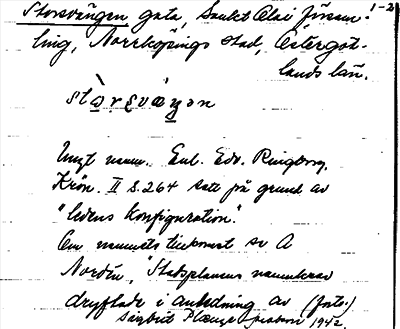 Storsvängen gata, Sankt Olai försam- 1-2
ling, Norrköpings stad, Östergöt-
lands län.
Ungt namn. Enl. Edv. Ringborg,
Krön. II s. 264 satt på grund av
"ledens konfiguration".
Om namnets tillkomst se A
Nordén, "Stadsplanens namnkrav
dryftade i anledning av (forts.)
1942